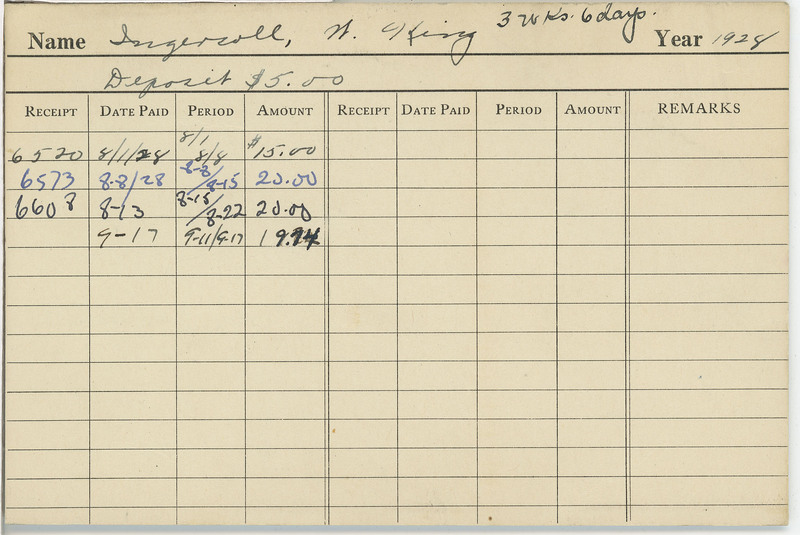 3 wks. 6 days.
Name Ingersoll, W. King Year 1928
Deposit $5.00
RECEIPT DATE PAID PERIOD AMOUNT RECEIPT DATE PAID PERIOD AMOUNT REMARKS
6520 8/1/28 8/1 8/8 $15.00
6573 8-8/28 8-8/8-15 20.00
6608 8-13 8-15/8-22 20.00
9-17 9-11/9-17